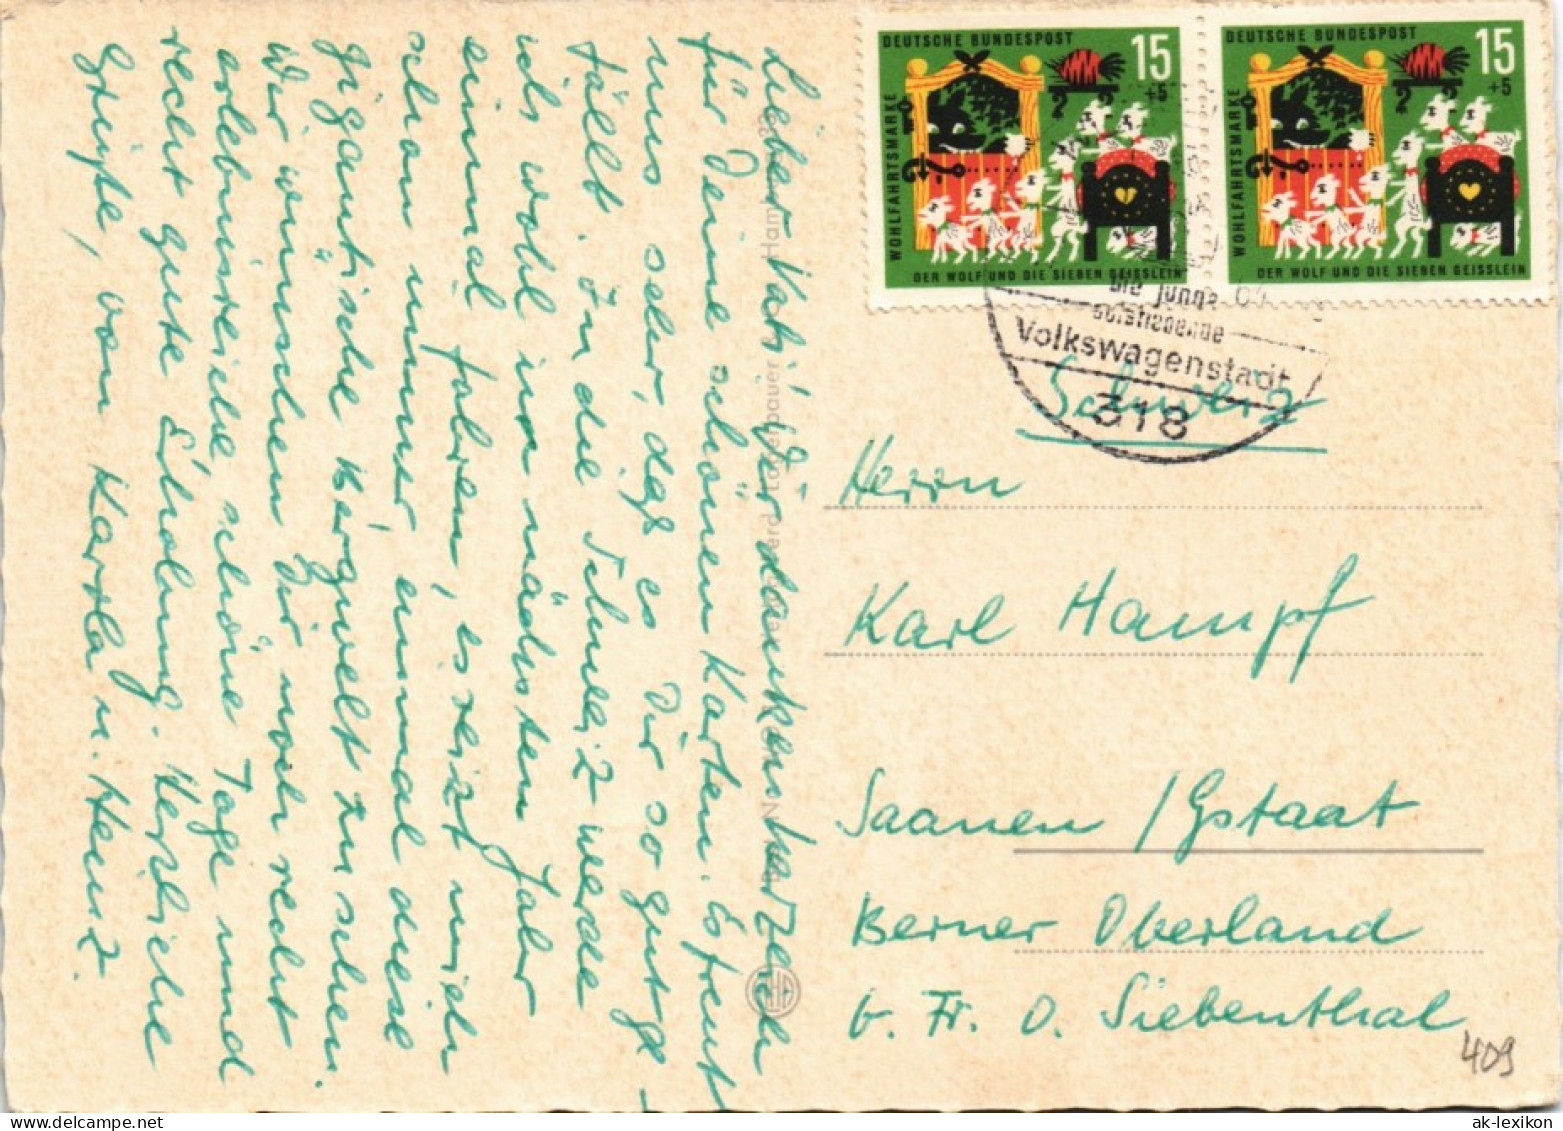 Lieber Vati! Wir danken herzlich
für Deine schönen Karten. Es freut
uns sehr, daß es Dir so gut ge-
fällt. In die Schweiz werde
ich wohl im nächsten Jahr
einmal fahren, es reizt mich
schon immer einmal diese
gigantische Bergwelt zu sehen.
Wir wünschen Dir noch recht
erlebnisreiche, schöne Tage und
recht gute Erholung. Herzliche
Grüße, von Karla u. Heinz.
DEUTSCHE BUNDESPOST
15
+5
WOHLFAHRTSMARKE
DER WOLF UND DIE SIEBEN GEISSLEIN
DEUTSCHE BUNDESPOST
15
+5
WOHLFAHRTSMARKE
DER WOLF UND DIE SIEBEN GEISSLEIN
Die junge
aufstrebende
Volkswagenstadt
318
Schweiz
Herrn
Karl Hampf
Saanen / Gstaat
Berner Oberland
b. Fr. O. Siebenthal
409
ak-ansichtskarten.de
ak-lexikon.com